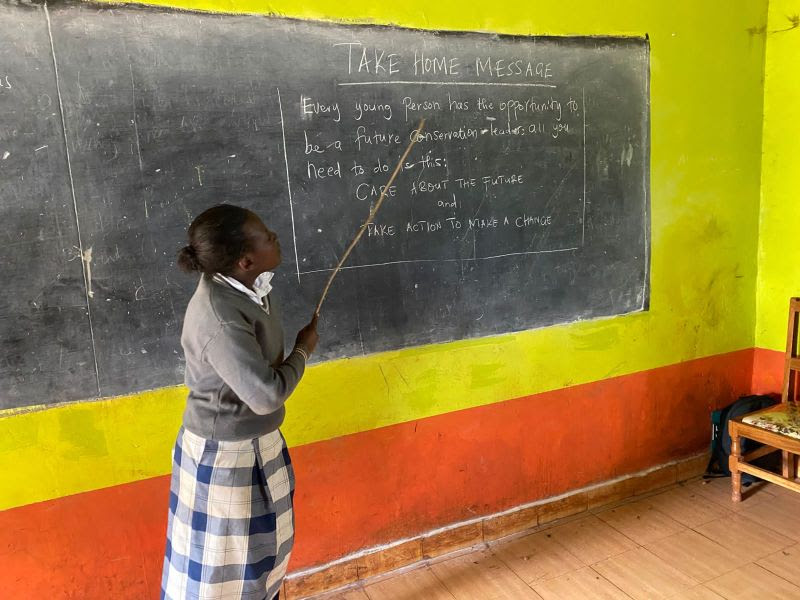 TAKE HOME MESSAGE
Every young Person has the opportunity to
be a future Conservation leader; all you
need to do is this:
CARE ABOUT THE FUTURE
and
TAKE ACTION TO MAKE A CHANGE